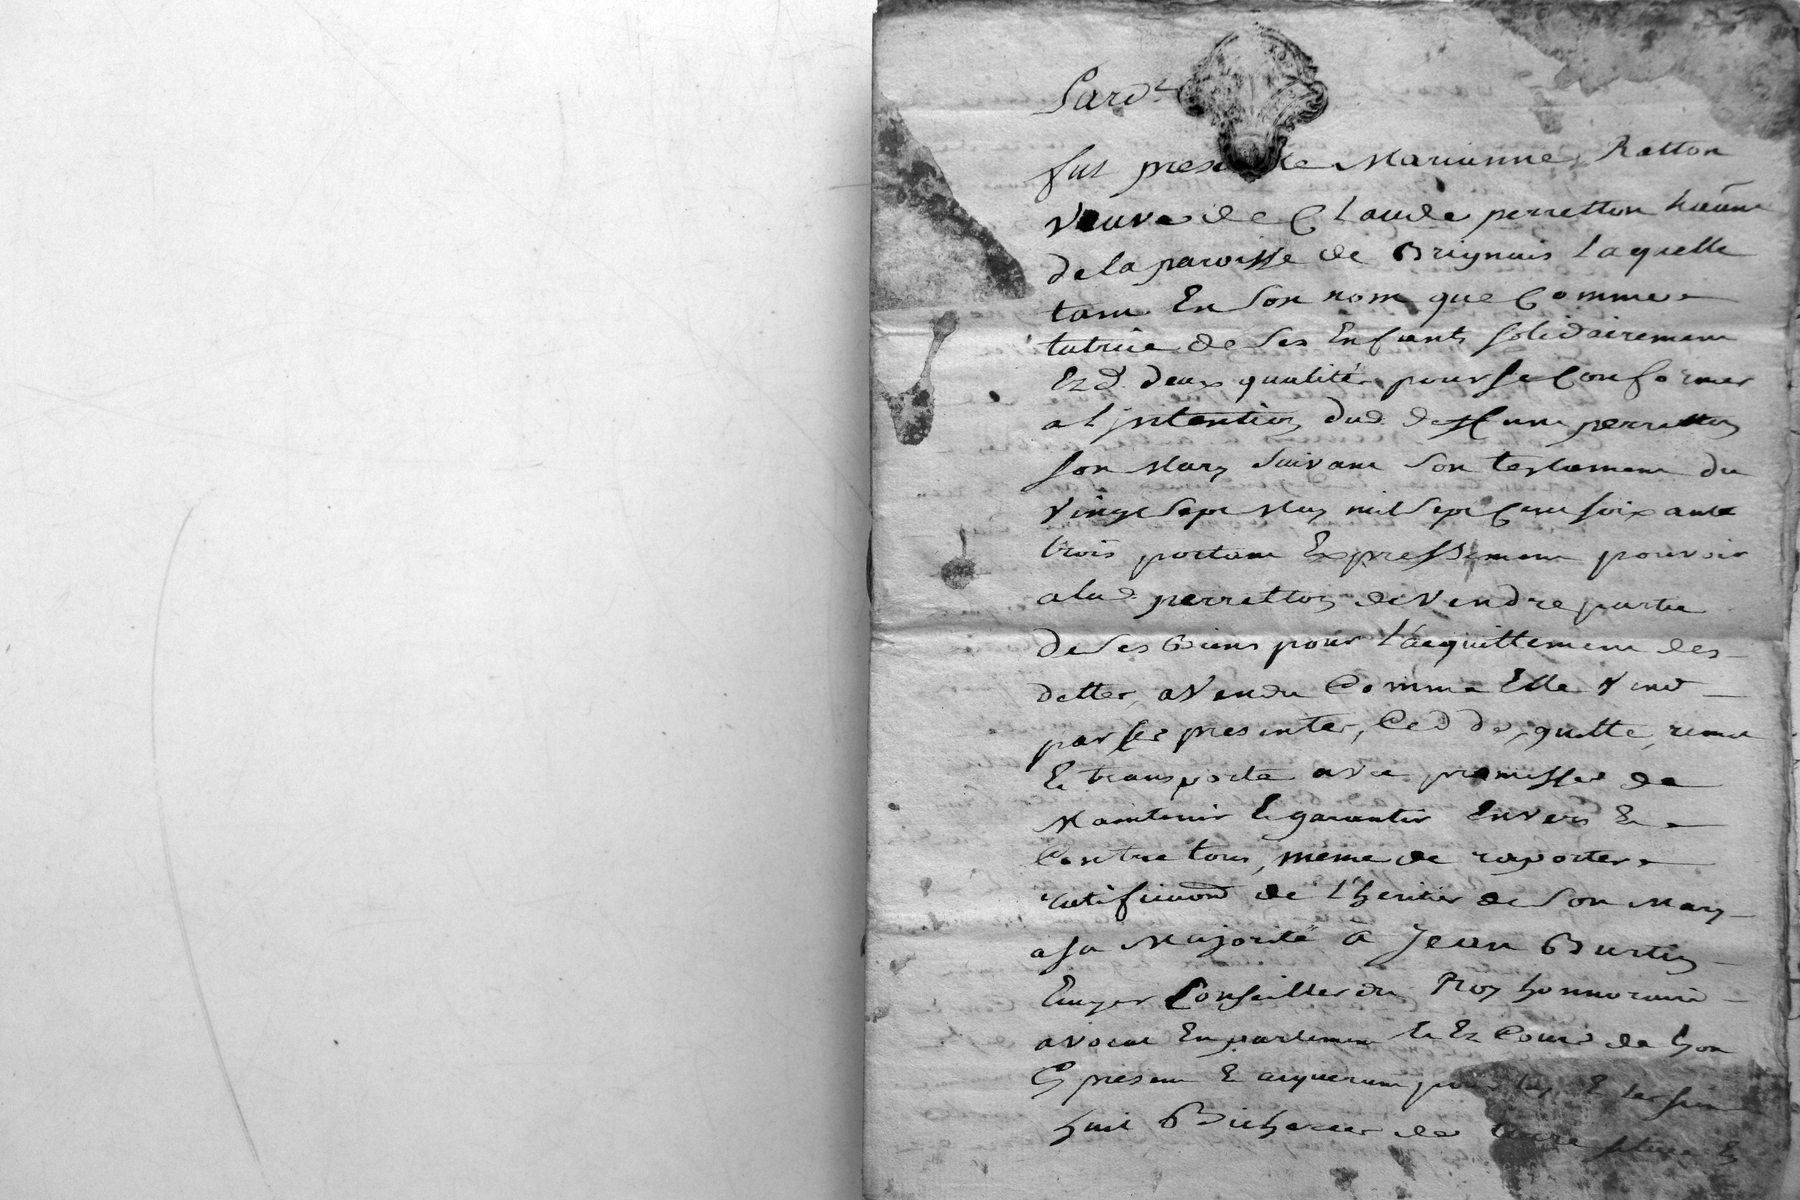 Pard.t
fut presente Marianne Ratton
veuve de Claude perretton
de la paroisse de Brignais laquelle
tant En son nom que Comme
tutrice de ses Enfants solidairement
Ezd. deux qualités pour se Conformer
a l'jntention dud. deffunt perretton
son Mary suivant son testament du
vingt sept May mil sept Cent soixante
trois portant Expressement pouvoir
a lad. perretton de Vendre partie
de ses Biens pour l'acquittement des
dettes, a Vendu Comme Elle Vend
par ses presentes, Cede desquitte, remet
Et transporte avec promesse de
Maintenir Et garantir Envers Et
Contre tous, meme de raporter
ratificaon de l'heritier de son Mary
a sa Majorité à Jean Burtin
Ecuyer Conseiller du Roy honnoraire
avocat En parlement Et Ez Cours de Lyon
Cy present Et aquerant pour luy Et les siens
huit Bicherées de terre scituée